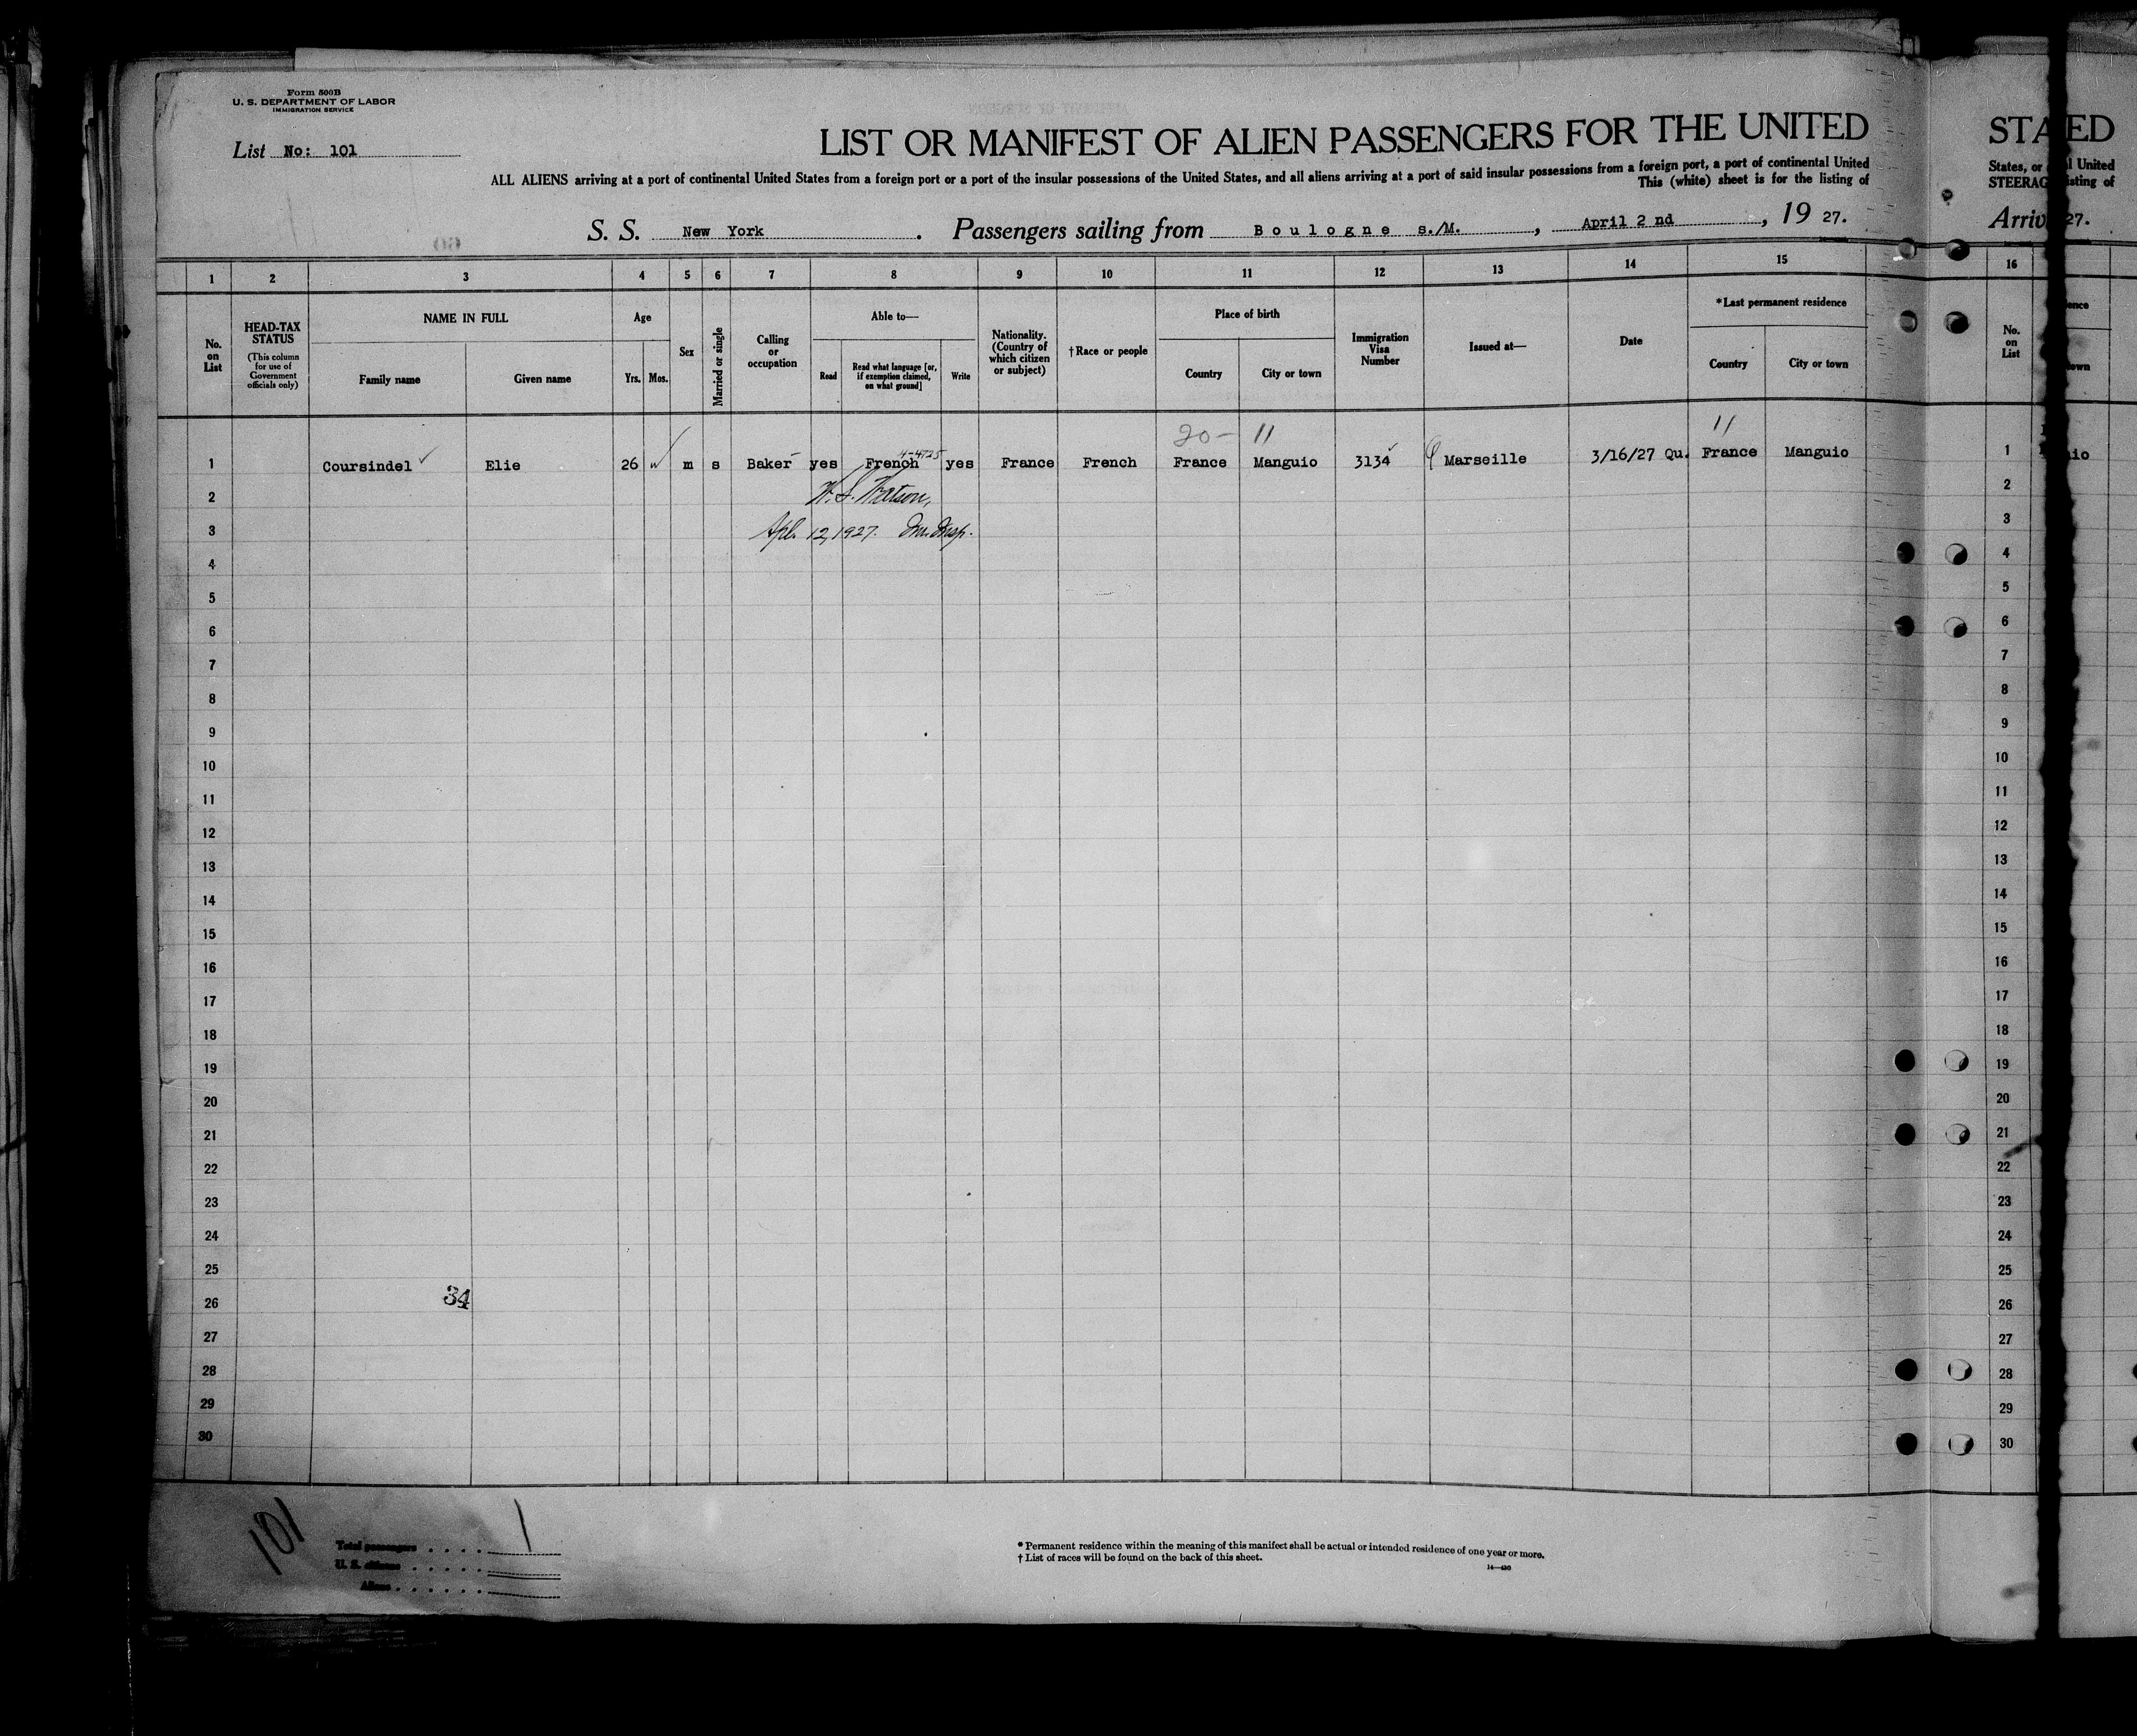 Form 500B
U. S. DEPARTMENT OF LABOR
IMMIGRATION SERVICE
List No: 101
LIST OR MANIFEST OF ALIEN PASSENGERS FOR THE UNITED
ALL ALIENS arriving at a port of continental United States from a foreign port or a port of the insular possessions of the United States, and all aliens arriving at a port of said insular possessions from a foreign port, a port of continental United
This (white) sheet is for the listing of
S. S. New York. Passengers sailing from Boulogne s./M., April 2 nd, 19 27.
1 2 3 4 5 6 7 8 9 10 11 12 13 14 15
No. on List
HEAD-TAX STATUS
(This column for use of Government officials only)
NAME IN FULL
Family name
Given name
Age
Yrs.
Mos.
Sex
Married or single
Calling or occupation
Able to—
Read
Read what language [or, if exemption claimed, on what ground]
Write
Nationality. (Country of which citizen or subject)
†Race or people
Place of birth
Country
City or town
Immigration Visa Number
Issued at—
Date
*Last permanent residence
Country
City or town
20- 11 11
4-4725
1 Coursindel Elie 26 m s Baker yes French yes France French France Manguio 3134 Marseille 3/16/27 Qu. France Manguio
2 W. S. Watson,
3 Apl. 12, 1927. Im. Insp.
4
5
6
7
8
9
10
11
12
13
14
15
16
17
18
19
20
21
22
23
24
25
26 34
27
28
29
30
101
Total passengers 1
U. S. citizens
Aliens
* Permanent residence within the meaning of this manifest shall be actual or intended residence of one year or more.
† List of races will be found on the back of this sheet.
STA ED
States, or l United
STEERAG sting of
Arriv 27.
16
No. on List
ence
own
1 io
2
3
4
5
6
7
8
9
10
11
12
13
14
15
16
17
18
19
20
21
22
23
24
25
26
27
28
29
30